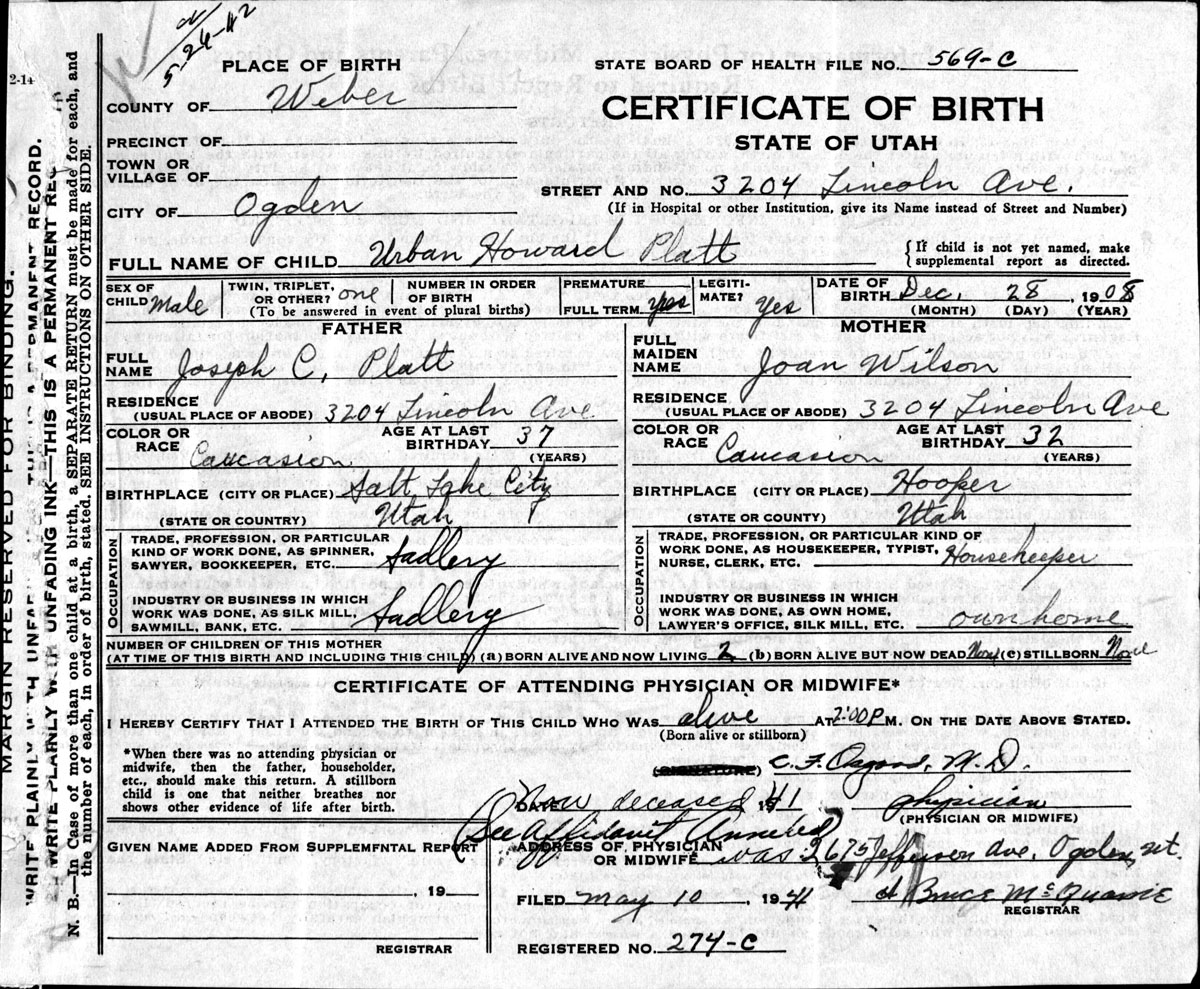 5-26-42
2-14
PLACE OF BIRTH
STATE BOARD OF HEALTH FILE NO. 569-C
COUNTY OF Weber
CERTIFICATE OF BIRTH
PRECINCT OF
STATE OF UTAH
TOWN OR
VILLAGE OF
STREET AND NO. 3204 Lincoln Ave.
(If in Hospital or other Institution, give its Name instead of Street and Number)
CITY OF Ogden
FULL NAME OF CHILD Urban Howard Platt
{If child is not yet named, make
supplemental report as directed.
SEX OF
CHILD Male
TWIN, TRIPLET,
OR OTHER? one
NUMBER IN ORDER
OF BIRTH
(To be answered in event of plural births)
PREMATURE
FULL TERM yes
LEGITI-
MATE? yes
DATE OF
BIRTH Dec. 28, 1908
(MONTH) (DAY) (YEAR)
FATHER
FULL
NAME Joseph C. Platt
RESIDENCE
(USUAL PLACE OF ABODE) 3204 Lincoln Ave
COLOR OR
RACE Caucasion
AGE AT LAST
BIRTHDAY 37
(YEARS)
BIRTHPLACE (CITY OR PLACE) Salt Lake City
(STATE OR COUNTRY) Utah
OCCUPATION
TRADE, PROFESSION, OR PARTICULAR
KIND OF WORK DONE, AS SPINNER,
SAWYER, BOOKKEEPER, ETC. Sadlery
INDUSTRY OR BUSINESS IN WHICH
WORK WAS DONE, AS SILK MILL,
SAWMILL, BANK, ETC. Sadlery
MOTHER
FULL
MAIDEN
NAME Joan Wilson
RESIDENCE
(USUAL PLACE OF ABODE) 3204 Lincoln Ave
COLOR OR
RACE Caucasion
AGE AT LAST
BIRTHDAY 32
(YEARS)
BIRTHPLACE (CITY OR PLACE) Hooper
(STATE OR COUNTRY) Utah
OCCUPATION
TRADE, PROFESSION, OR PARTICULAR KIND OF
WORK DONE, AS HOUSEKEEPER, TYPIST,
NURSE, CLERK, ETC. Housekeeper
INDUSTRY OR BUSINESS IN WHICH
WORK WAS DONE, AS OWN HOME,
LAWYER'S OFFICE, SILK MILL, ETC. own home
NUMBER OF CHILDREN OF THIS MOTHER
(AT TIME OF THIS BIRTH AND INCLUDING THIS CHILD) (a) BORN ALIVE AND NOW LIVING 2 (b) BORN ALIVE BUT NOW DEAD None (c) STILLBORN None
CERTIFICATE OF ATTENDING PHYSICIAN OR MIDWIFE*
I HEREBY CERTIFY THAT I ATTENDED THE BIRTH OF THIS CHILD WHO WAS alive AT 2:00 P M. ON THE DATE ABOVE STATED.
(Born alive or stillborn)
*When there was no attending physician or
midwife, then the father, householder,
etc., should make this return. A stillborn
child is one that neither breathes nor
shows other evidence of life after birth.
(SIGNATURE) C. F. Osgood, M.D.
DATE Now deceased 41
physician
(PHYSICIAN OR MIDWIFE)
(See Affidavit Annexed)
ADDRESS OF PHYSICIAN
OR MIDWIFE was 2675 Jefferson Ave, Ogden, ut.
GIVEN NAME ADDED FROM SUPPLEMENTAL REPORT
, 19
REGISTRAR
FILED May 10, 1941
H Bruce McQuarrie
REGISTRAR
REGISTERED NO. 274-C
MARGIN RESERVED FOR BINDING.
WRITE PLAINLY WITH UNFADING PERMANENT RECORD.
WRITE PLAINLY WITH UNFADING INK—THIS IS A PERMANENT REC
N. B.—In Case of more than one child at a birth, a SEPARATE RETURN must be made for each, and
the number of each, in order of birth, stated. SEE INSTRUCTIONS ON OTHER SIDE.